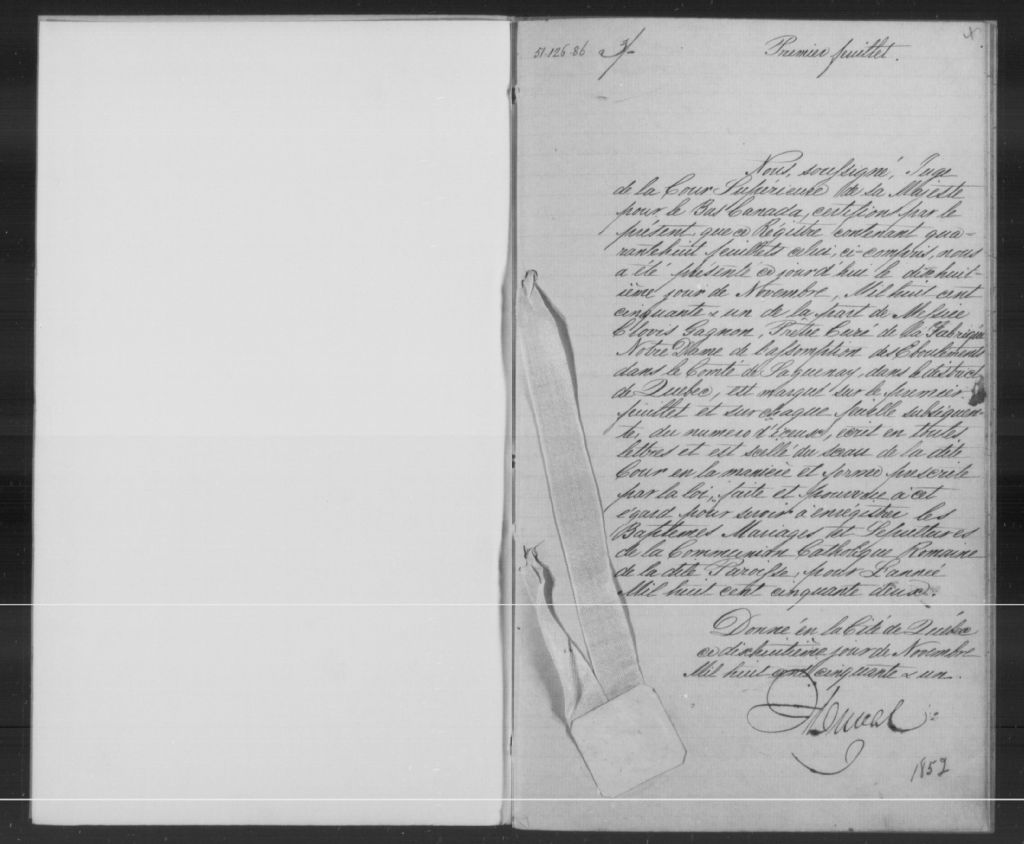 51-126-86
Premier feuillet.
Nous, soussigné, Juge
de la Cour Supérieure de sa Majesté
pour le Bas Canada, certifions par le
présent que ce Régistre contenant qua-
rantehuit feuillets celui, ci-compris, nous
a été présenté ce jourd'hui le dixhuit-
ième jour de Novembre, Mil huit cent
cinquante & un de la part de Messire
Clovis Gagnon, Prêtre Curé de la Fabrique
Notre Dame de l'assomption des Eboulements
dans le Comté de Saguenay, dans le district
de Québec, est marqué sur le premier
feuillet et sur chaque feuille subséquen-
te, du numero d'iceux, écrit en toutes
lettres et est scellé du sceau de la dite
Cour en la manière et forme prescrite
par la loi, faite et pourvue à cet
égard pour servir à enregistrer les
Baptêmes Mariages et Sépultures
de la Communion Catholique Romaine
de la dite Paroisse, pour L'année
Mil huit cent cinquante deux.
Donné en la Cité de Québec
ce dixhuitième jour de Novembre
Mil huit cent cinquante & un.
Duval
1852